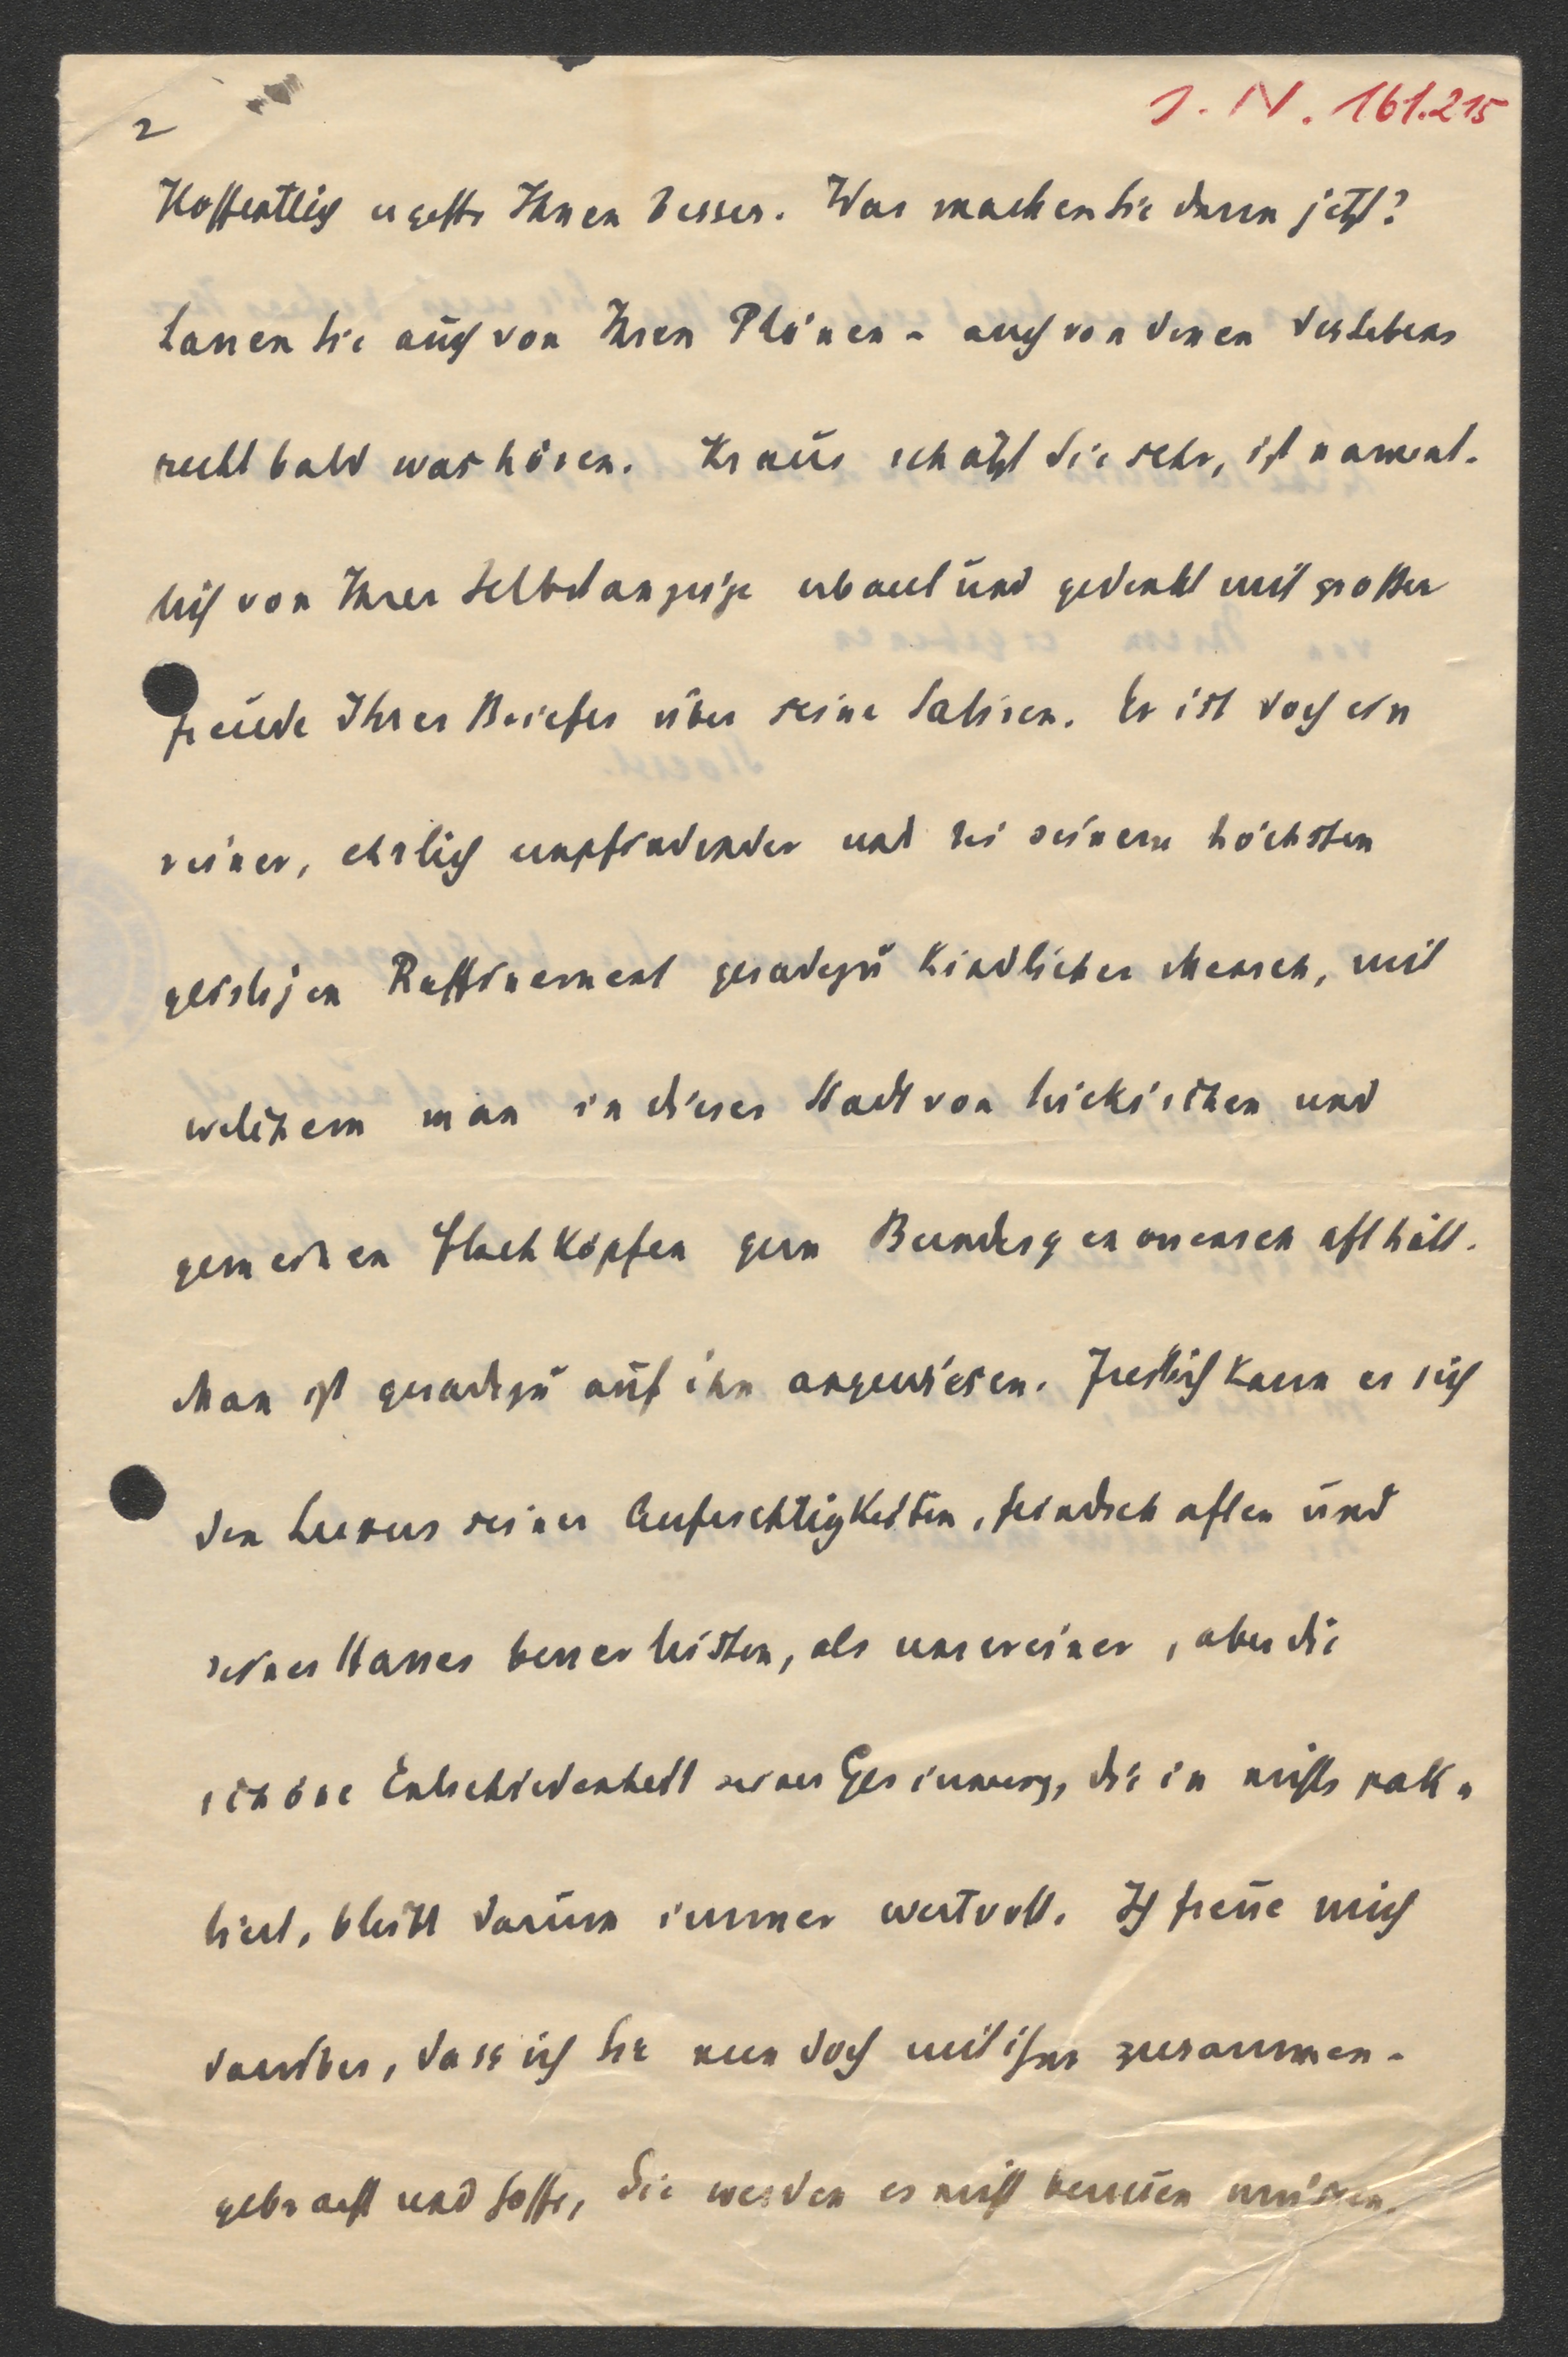 2
J. N. 161.215
Hoffentlich ergehts Ihnen besser. Was machen Sie denn jetzt?
Lassen Sie auch von Ihren Plänen - auch von denen des Lebens
recht bald was hören. Kraus schätzt Sie sehr, ist nament-
lich von Ihrer Selbstanzeige erbaut und gedenkt mit großer
Freude Ihres Briefes über seine Satiren. Er ist doch ein
reiner, ehrlich empfindender und bei seinem höchsten
geistigen Raffinement geradezu kindlicher Mensch, mit
welchem man in dieser Stadt von tückischen und
gemeinen Flachköpfen gern Bundesgenossenschaft hält.
Man ist geradezu auf ihn angewiesen. Freilich kann er sich
den Luxus seiner Aufrichtigkeiten, Feindschaften und
seines Hasses besser leisten, als unsereiner, aber die
schöne Entschiedenheit seiner Gesinnung, die in nichts pak-
tiert, bleibt darum immer wertvoll. Ich freue mich
darüber, dass ich Sie nun doch mit ihm zusammen-
gebracht und hoffe, Sie werden es nicht bereuen müssen.